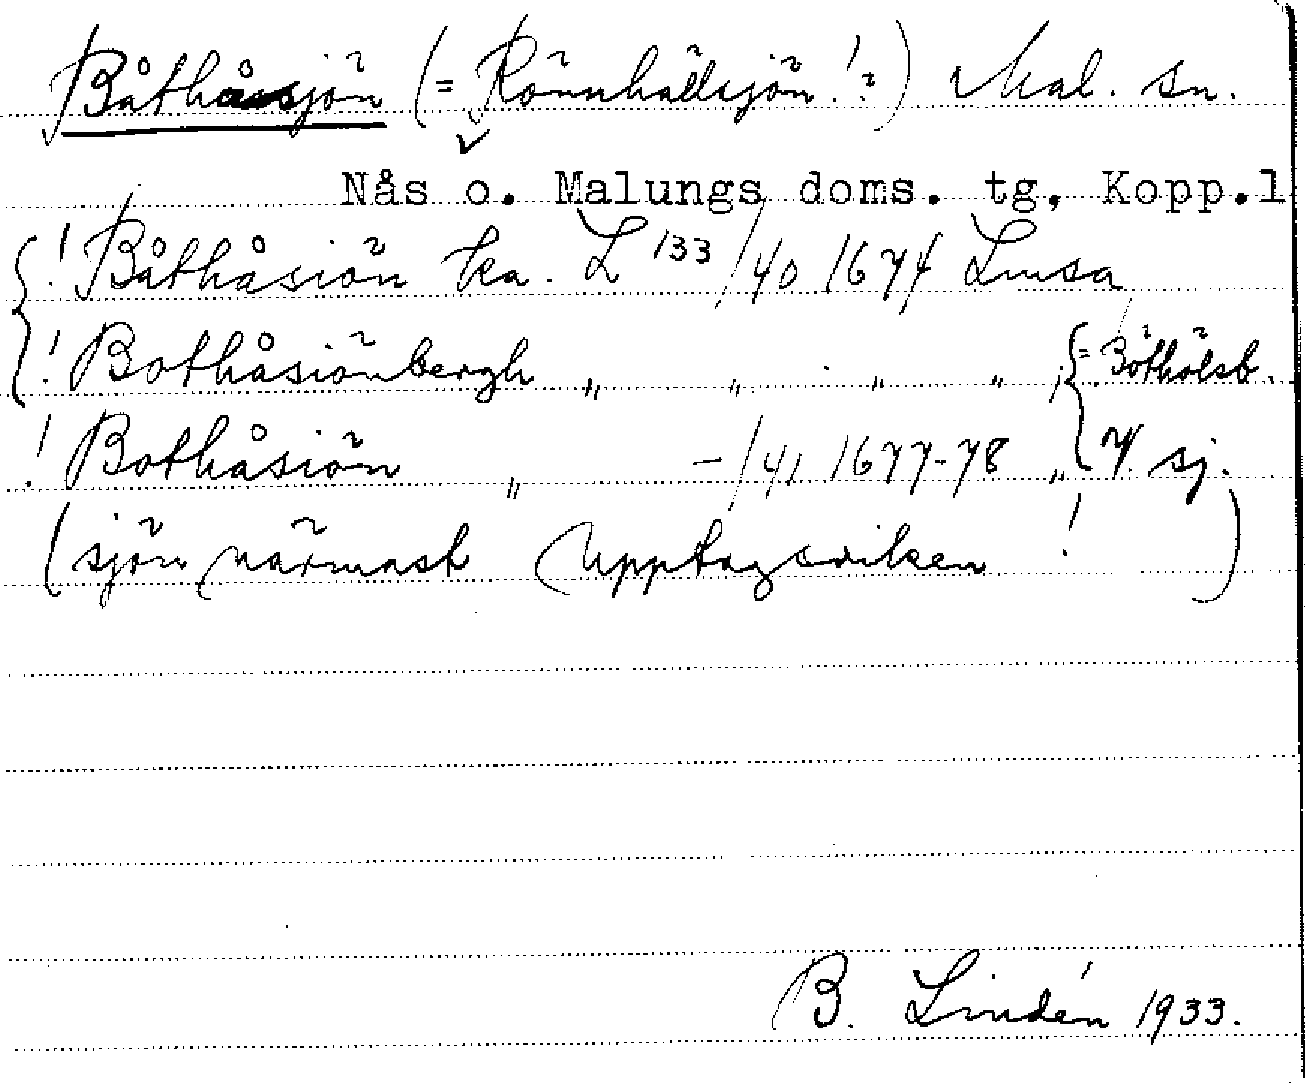 Båthåsjön (= Rönnhällsjön!?) Mal. sn.
Nås o. Malungs doms. tg, Kopp.l
! Båthåsiön ka. L 133/40 1674 Limsa
! Bothåsiönbergh „ „ „ „ ; = Böthölsb.
! Bothåsiön „ -/41 1677-78 „ sj.
(sjön närmast Upptagsviken ! )
B. Lindén 1933.